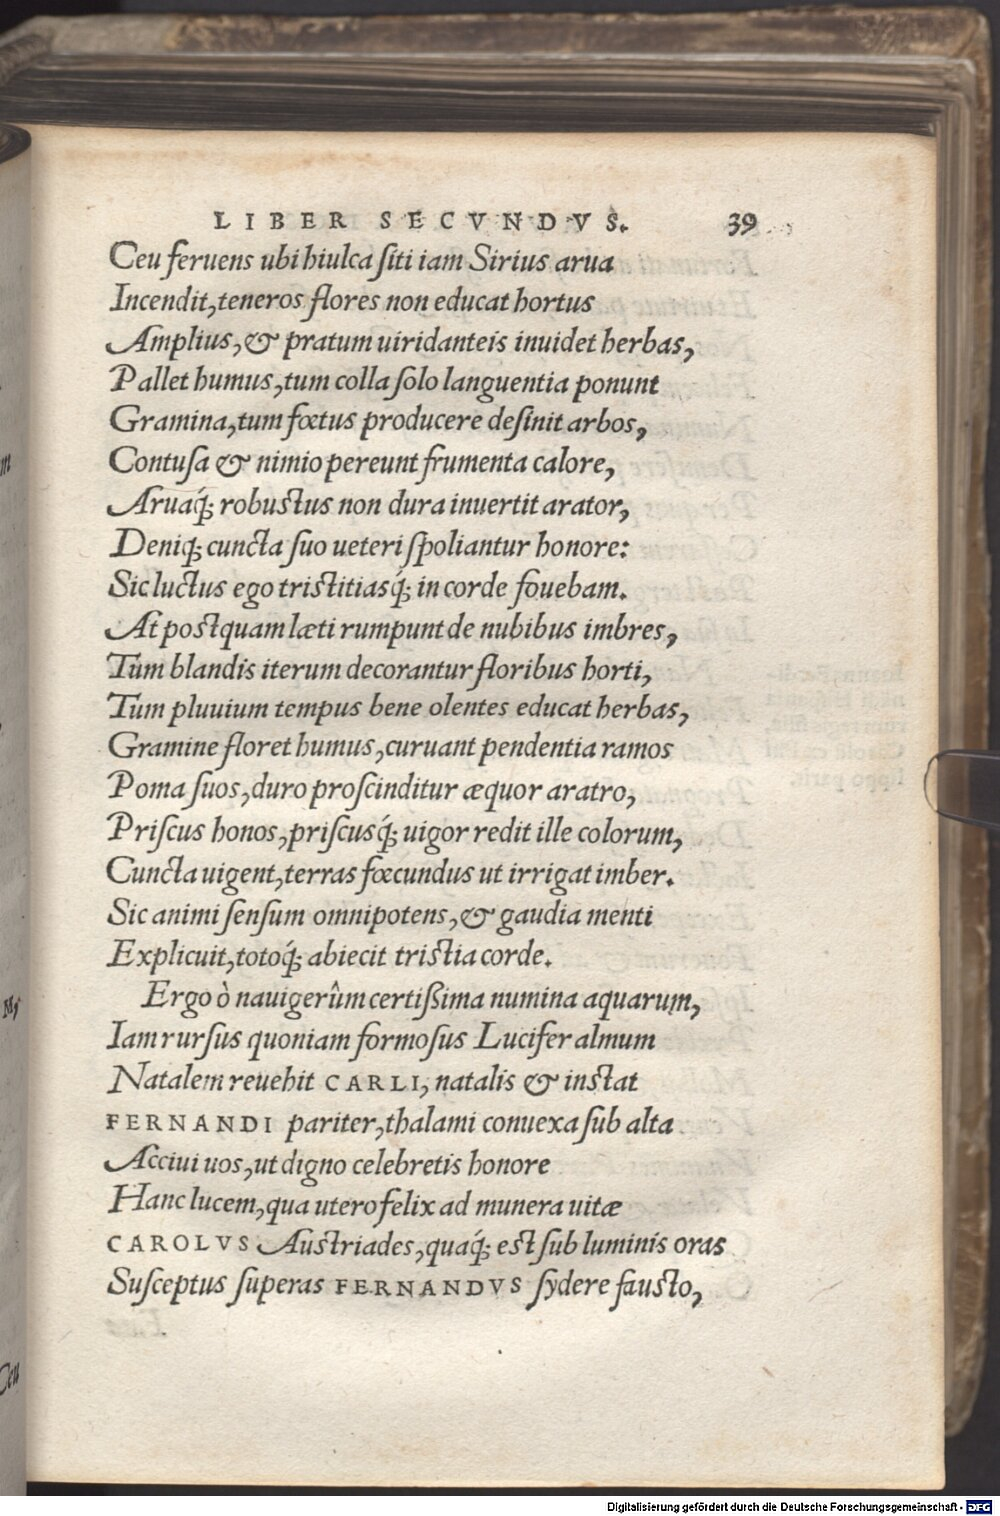 LIBER SECVNDVS. 39
Ceu feruens ubi hiulca siti iam Sirius arua
Incendit, teneros flores non educat hortus
Amplius, & pratum uiridanteis inuidet herbas,
Pallet humus, tum colla solo languentia ponunt
Gramina, tum fœtus producere desinit arbos,
Contusa & nimio pereunt frumenta calore,
Aruaq́; robustus non dura inuertit arator,
Deniq; cuncta suo ueteri spoliantur honore:
Sic luctus ego tristitiasq́; in corde fouebam.
At postquam læti rumpunt de nubibus imbres,
Tum blandis iterum decorantur floribus horti,
Tum pluuium tempus bene olentes educat herbas,
Gramine floret humus, curuant pendentia ramos
Poma suos, duro proscinditur æquor aratro,
Priscus honos, priscusq́; uigor redit ille colorum,
Cuncta uigent, terras fœcundus ut irrigat imber.
Sic animi sensum omnipotens, & gaudia menti
Explicuit, totoq́; abiecit tristia corde.
Ergo ò nauigerûm certißima numina aquarum,
Iam rursus quoniam formosus Lucifer almum
Natalem reuehit CARLI, natalis & instat
FERNANDI pariter, thalami conuexa sub alta
Acciui uos, ut digno celebretis honore
Hanc lucem, qua utero felix ad munera uitæ
CAROLVS Austriades, quaq́; est sub luminis oras
Susceptus superas FERNANDVS sydere fausto,
Ceu
Digitalisierung gefördert durch die Deutsche Forschungsgemeinschaft - DFG